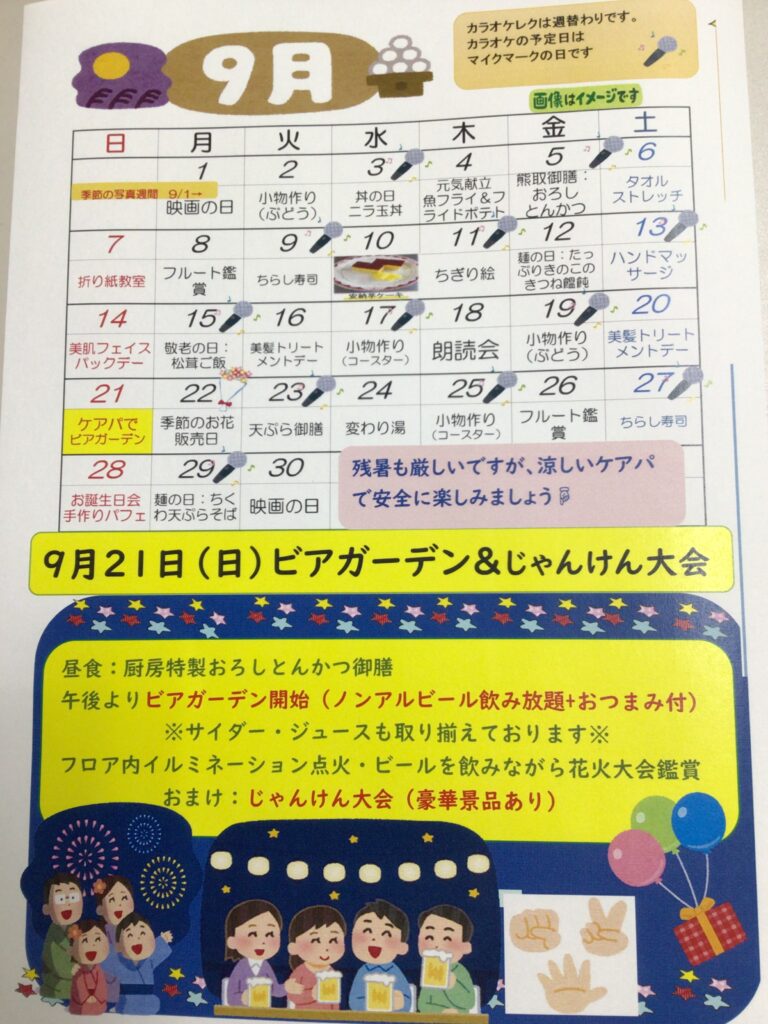 カラオケレクは週替わりです。
カラオケの予定日は
マイクマークの日です
9月
画像はイメージです
日 月 火 水 木 金 土
1 2 3 4 5 6
季節の写真週間 9/1→
映画の日
小物作り
(ぶどう)
丼の日
ニラ玉丼
元気献立
魚フライ&フ
ライドポテト
熊取御膳:
おろし
とんかつ
タオル
ストレッチ
7 8 9 10 11 12 13
折り紙教室
フルート鑑
賞
ちらし寿司
ちぎり絵
麺の日:たっ
ぷりきのこの
きつね饂飩
ハンドマッ
サージ
14 15 16 17 18 19 20
美肌フェイス
パックデー
敬老の日:
松茸ご飯
美髪トリート
メントデー
小物作り
(コースター)
朗読会
小物作り
(ぶどう)
美髪トリート
メントデー
21 22 23 24 25 26 27
ケアパで
ビアガーデン
季節のお花
販売日
天ぷら御膳
変わり湯
小物作り
(コースター)
フルート鑑
賞
ちらし寿司
28 29 30
お誕生日会
手作りパフェ
麺の日:ちく
わ天ぷらそば
映画の日
残暑も厳しいですが、涼しいケアパ
で安全に楽しみましょう
9月21日(日)ビアガーデン&じゃんけん大会
昼食:厨房特製おろしとんかつ御膳
午後よりビアガーデン開始(ノンアルビール飲み放題+おつまみ付)
※サイダー・ジュースも取り揃えております※
フロア内イルミネーション点火・ビールを飲みながら花火大会鑑賞
おまけ:じゃんけん大会(豪華景品あり)